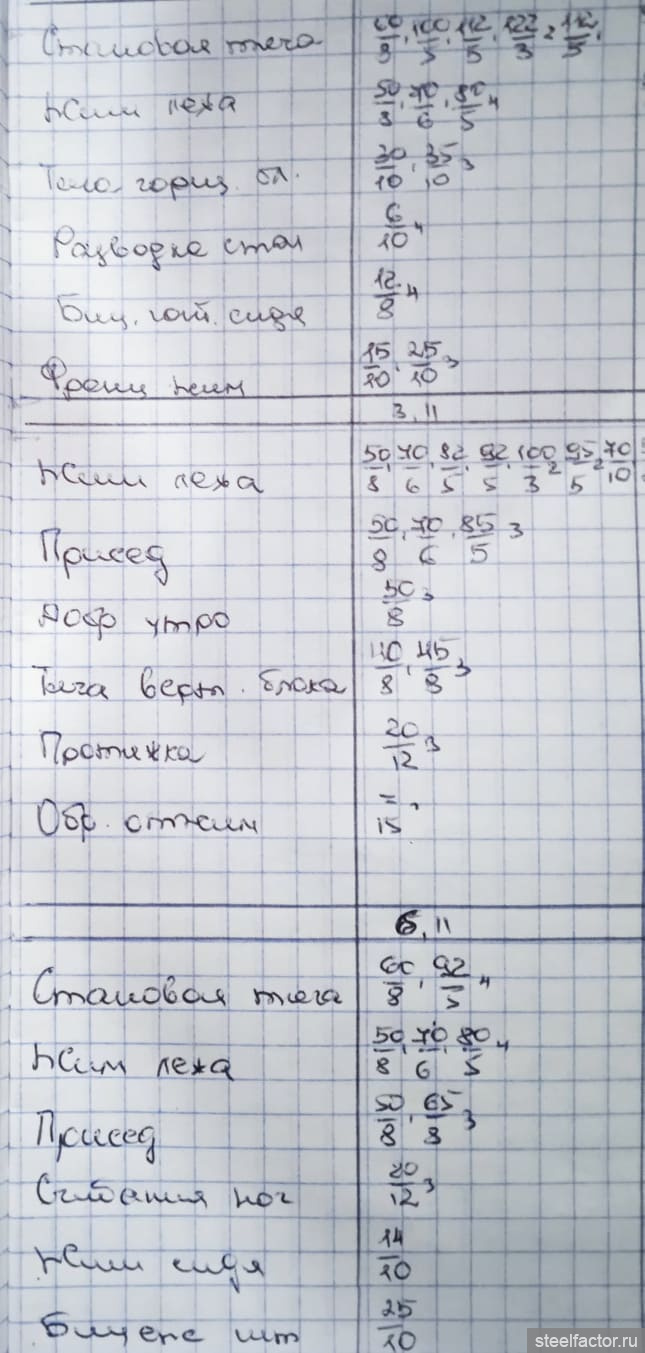 Становая тяга 60/8, 100/5, 112/5, 122/3 2 112/5,
Жим лежа 50/8, 70/6, 80/5 4
Тяга гориц. бл. 30/10, 35/10 3
Разводка стоя 6/10 4
Биц. гант. сидя 12/8 4
Франц жим 15/10, 25/10 3
3, 11
Жим лежа 50/8, 70/6, 82/5, 92/5, 100/3 2 95/5 2 70/10
Присед 50/8, 70/6, 85/5 3
Добр утро 50/8 3
Тяга верт. блока 40/8, 45/8 3
Протяжка 20/12 3
Обр. отжим =/15,
6, 11
Становая тяга 60/8, 92/5 4
Жим лежа 50/8, 70/6, 80/5 4
Присед 50/8, 65/8 3
Сгибания ног 20/12 3
Жим сидя 14/10
Бицепс шт 25/10
steelfactor.ru